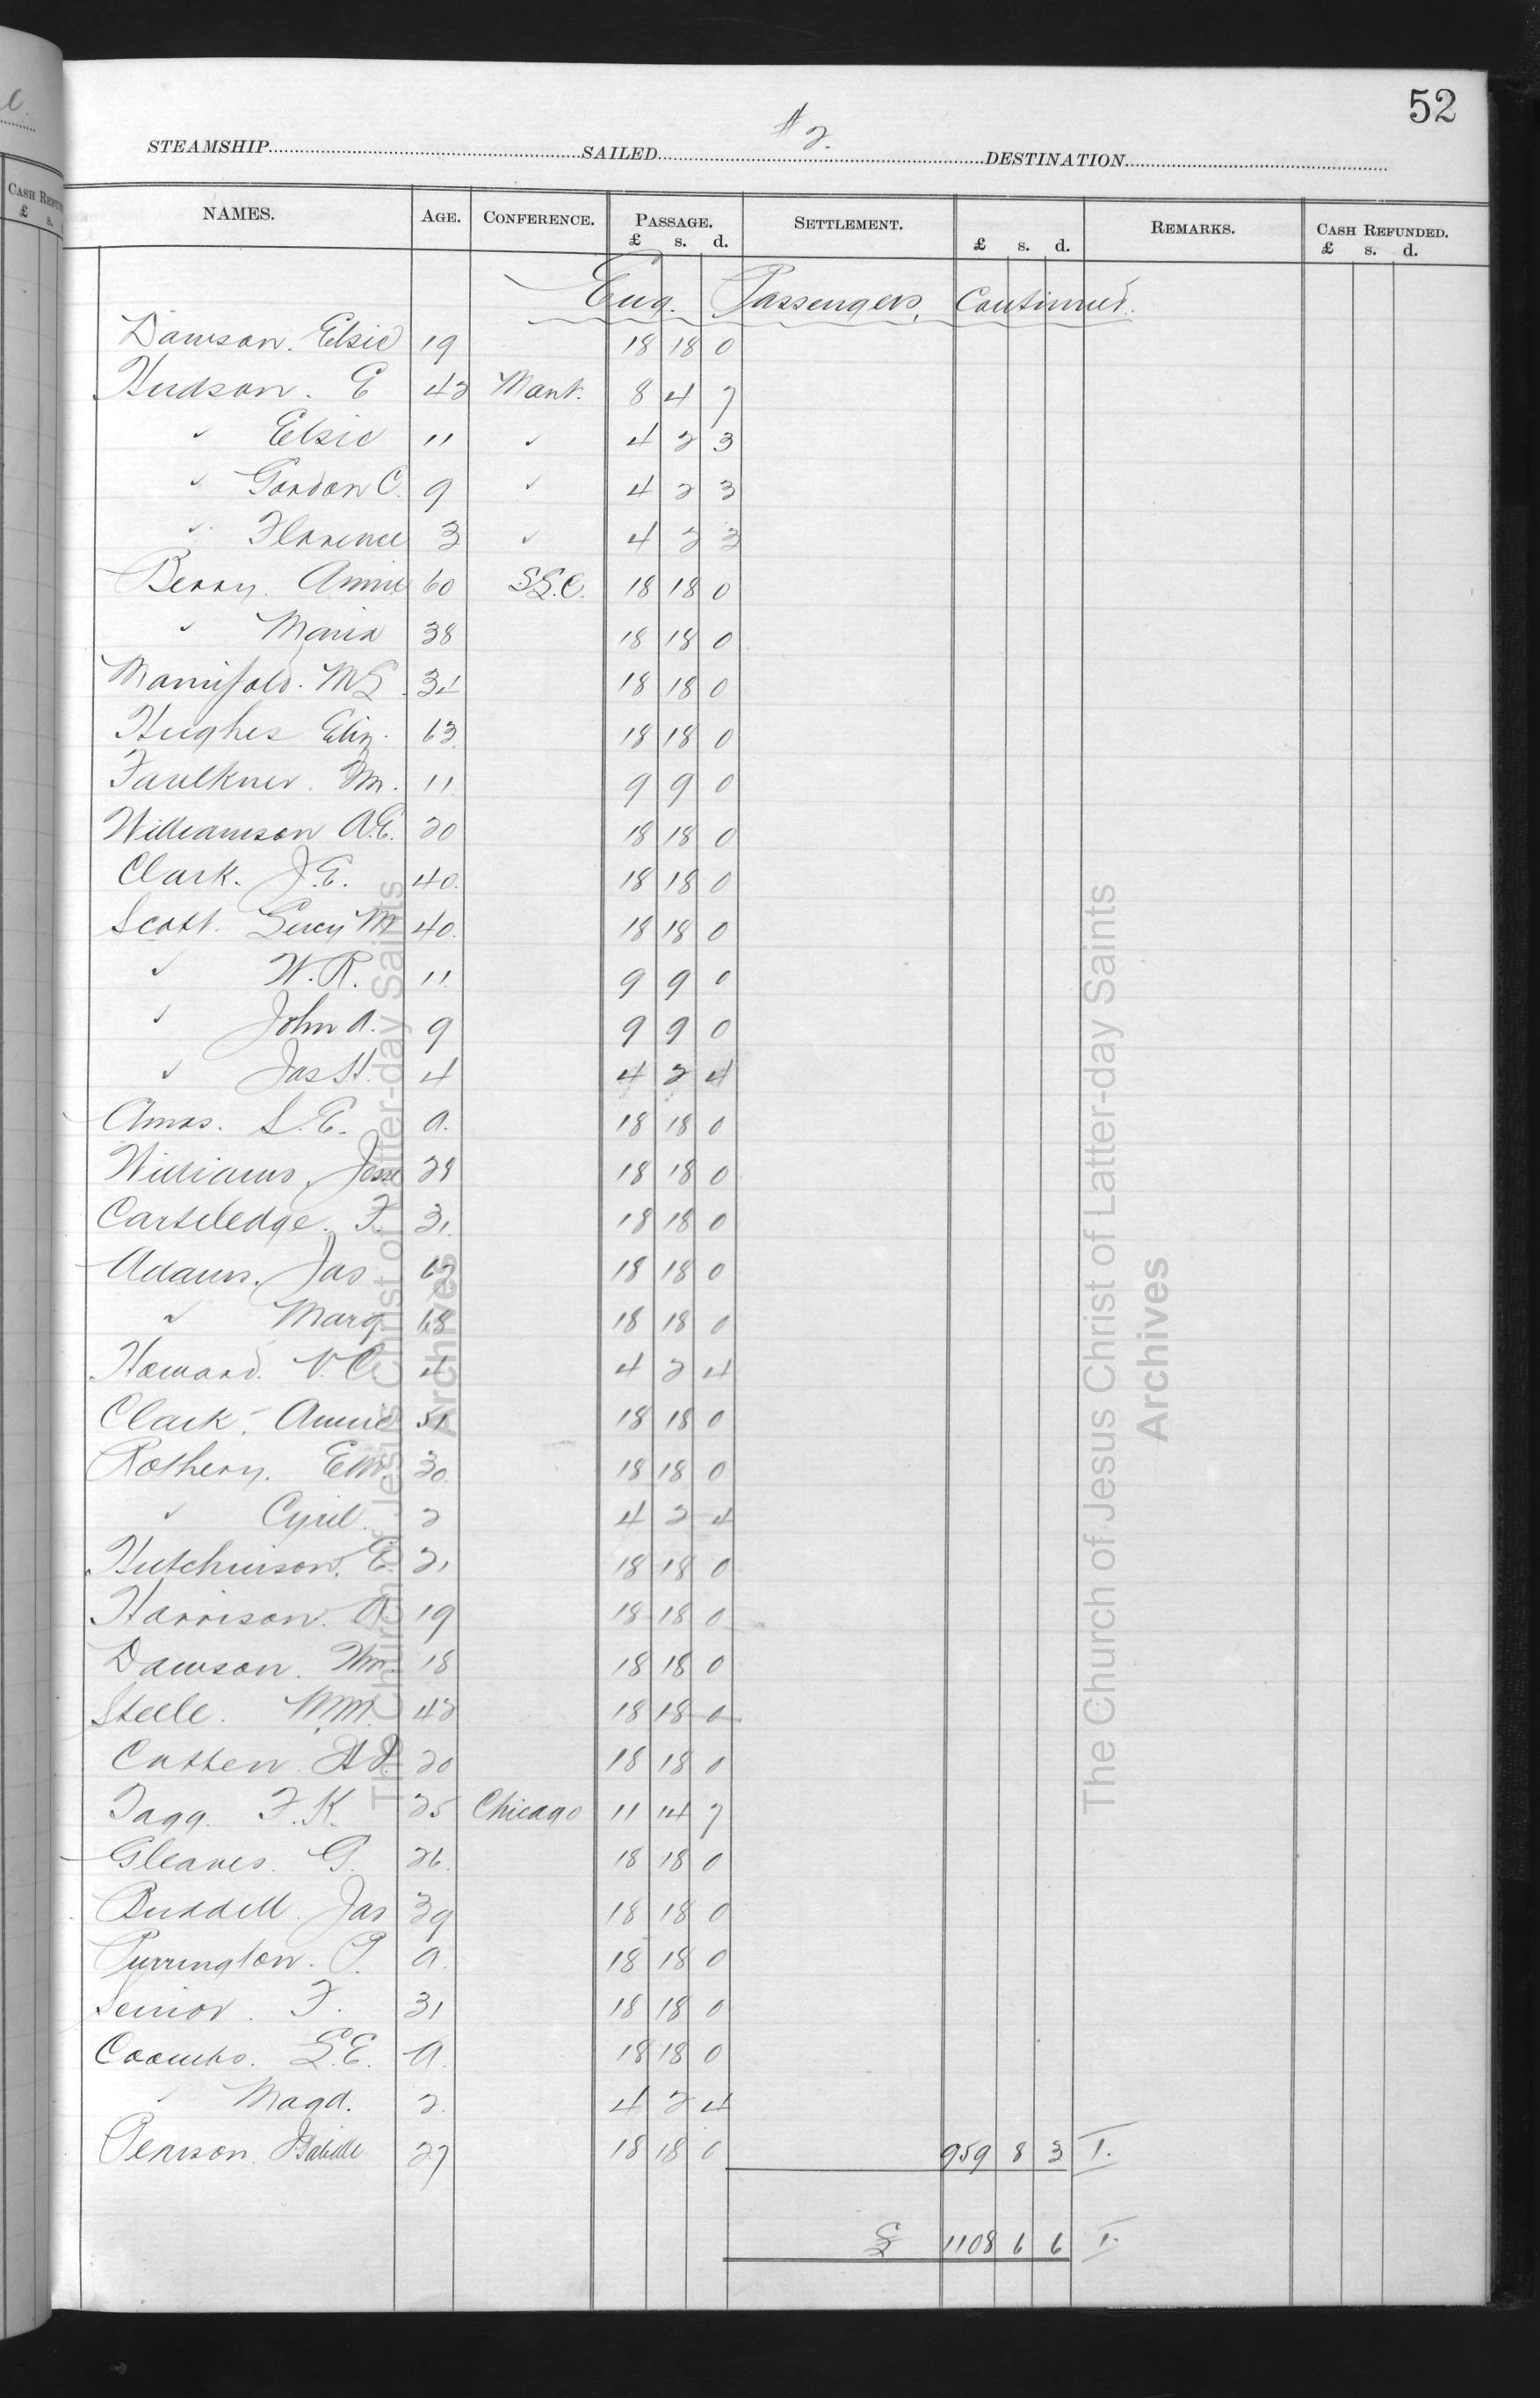 52
# 2.
STEAMSHIP SAILED DESTINATION
NAMES. AGE. CONFERENCE. PASSAGE. SETTLEMENT. REMARKS. CASH REFUNDED.
£ s. d. £ s. d. £ s. d.
Eng. Passengers, Continued.
Dawson. Elsie 19 18 18 0
Hudson. E 42 Mant. 8 4 7
✓ Elsie 11 ✓ 4 2 3
✓ Gordon C. 9 ✓ 4 2 3
✓ Florence 3 ✓ 4 2 3
Berry. Annie 60 S.L.C. 18 18 0
✓ Maria 38 18 18 0
Mannifold. M L 34 18 18 0
Hughes Eliz. 63 18 18 0
Faulkner. Wm. 11 9 9 0
Williamson A.E. 20 18 18 0
Clark. J.E. 40. 18 18 0
Scott. Lucy M 40. 18 18 0
✓ W.R. 11 9 9 0
✓ John A. 9 9 9 0
✓ Jas H. 4 4 2 4
Amos. S.E. a. 18 18 0
Williams, Jesse 28 18 18 0
Cartledge. F. 31. 18 18 0
Adams. Jas 18 18 0
✓ Marg. 68 18 18 0
Howard. V.C. 4 4 2 4
Clark. Annie 51 18 18 0
Rothery. Em. 30. 18 18 0
✓ Cyril. 2 4 2 4
Hutchinson. E. 21 18 18 0
Harrison. A. 19 18 18 0
Dawson. Wm. 18 18 18 0
Steele. Wm. 42 18 18 0
Cotten. 20 18 18 0
Tagg. F.K. 25 Chicago 11 14 7
Gleaves. G. 26. 18 18 0
Buddell. Jas 39 18 18 0
Purrington. P. a. 18 18 0
Senior. F. 31 18 18 0
Coombs. L.E. a. 18 18 0
✓ Magd. 2. 4 2 4
Penson. Isabelle 27 18 18 0 959 8 3 I.
£ 1108 6 6 I.
CASH REFUN
£ s.
The Church of Jesus Christ of Latter-day Saints
Archives
The Church of Jesus Christ of Latter-day Saints
Archives